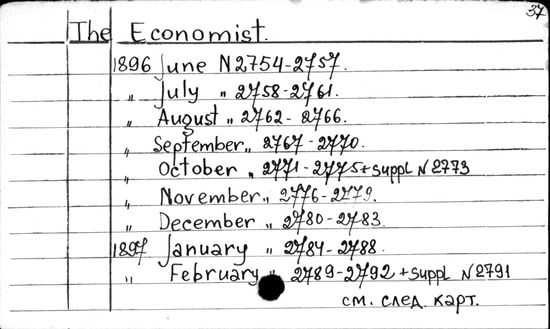 37
The Economist.
1896 June N 2754-2757.
„ July „ 2758-2761.
„ August „ 2762-2766.
„ September „ 2767-2770.
„ October „ 2771-2775 + suppl N 2773
„ November „ 2776-2779.
„ December „ 2780-2783.
1897 January „ 2784-2788.
„ February „ 2789-2792 + suppl N 2791
см. след. карт.